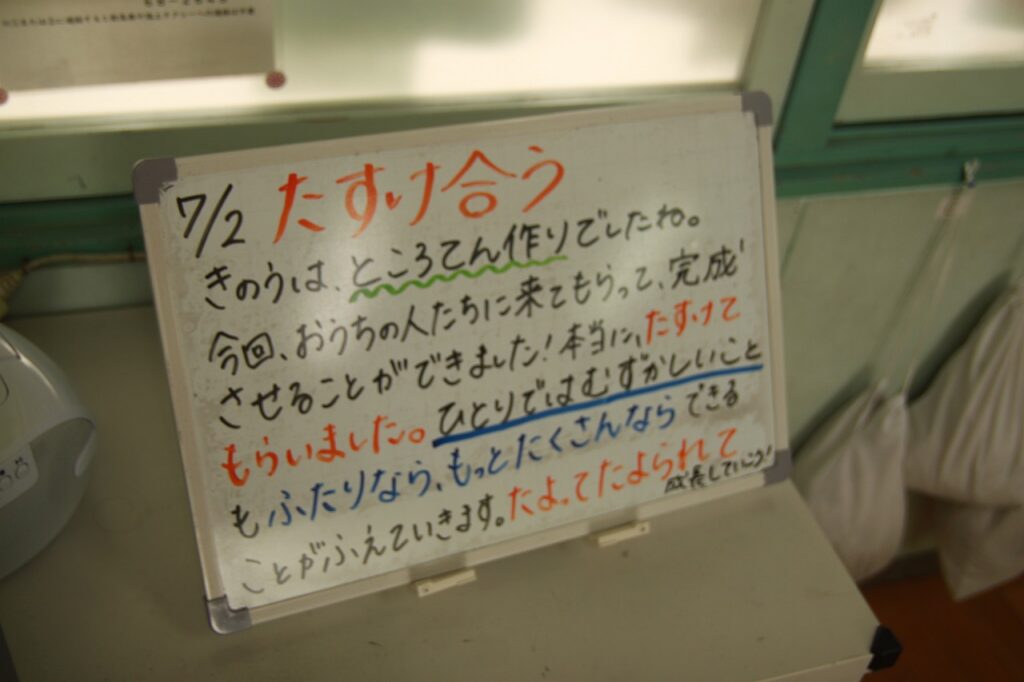 7/2 たすけ合う
きのうは、ところてん作りでしたね。
今回、おうちの人たちに来てもらって、完成
させることができました!本当に、たすけて
もらいました。ひとりではむずかしいこと
もふたりなら、もっとたくさんなら できる
ことがふえていきます。たよってたよられて
成長していこう!